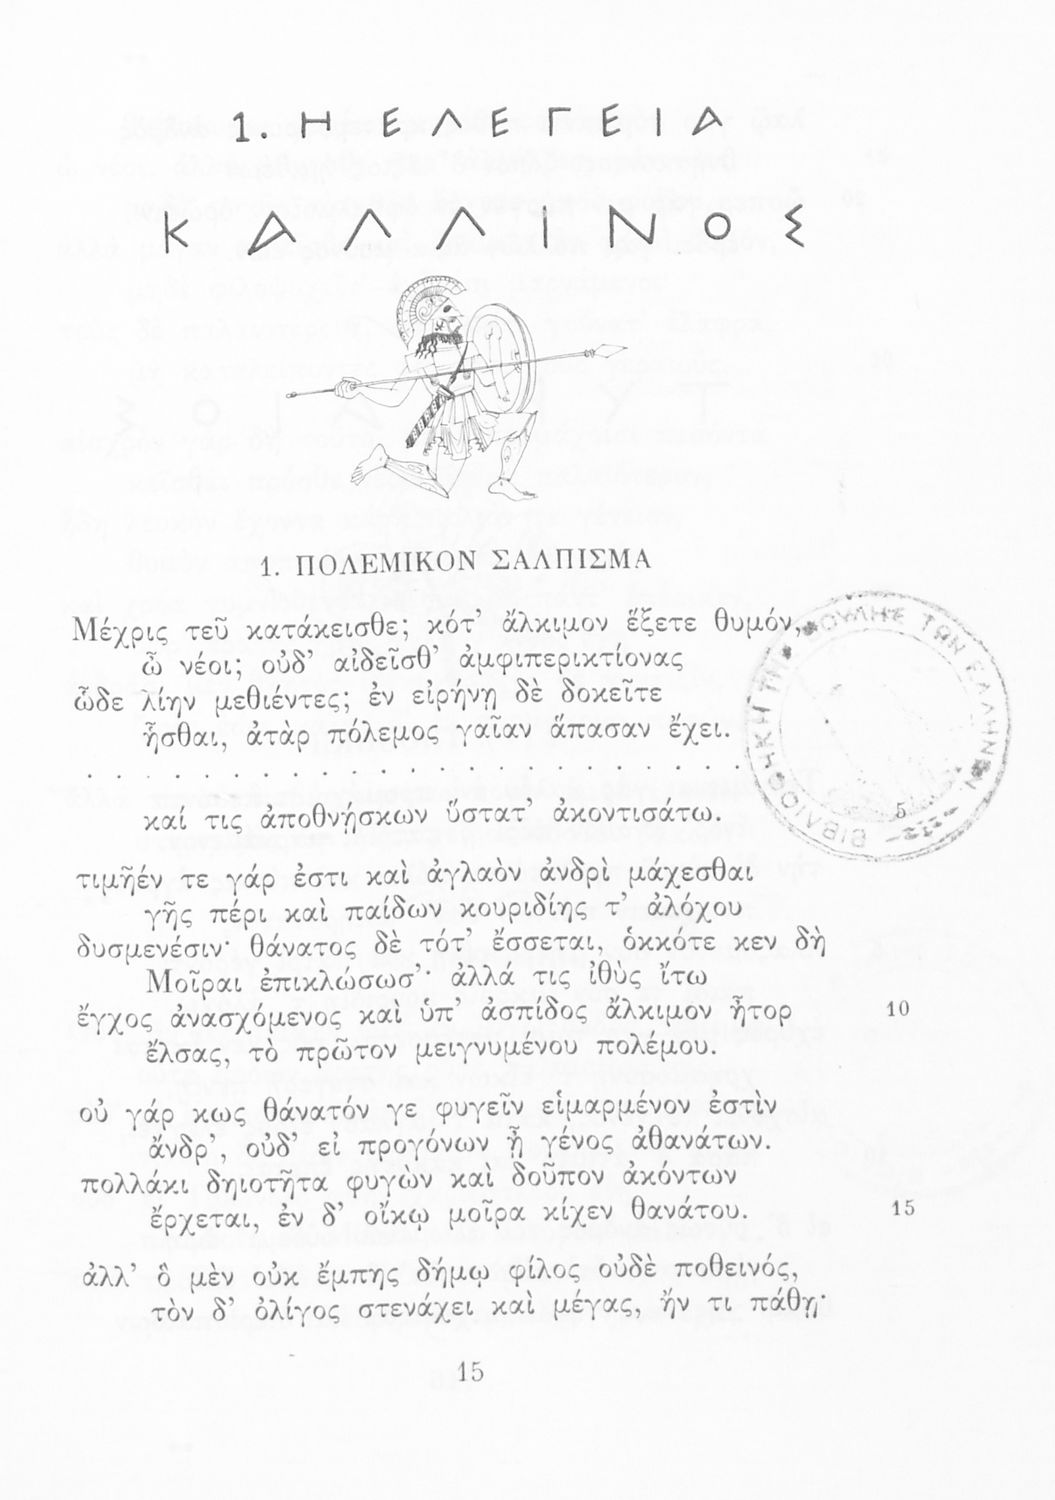 1. Η ΕΛΕΓΕΙΑ
ΚΑΛΛΙΝΟΣ
1. ΠΟΛΕΜΙΚΟΝ ΣΑΛΠΙΣΜΑ
Μέχρις τεῦ κατάκεισθε; κότ’ ἄλκιμον ἕξετε θυμόν,
ὦ νέοι; οὐδ’ αἰδεῖσθ’ ἀμφιπερικτίονας
ὧδε λίην μεθιέντες; ἐν εἰρήνῃ δὲ δοκεῖτε
ἧσθαι, ἀτὰρ πόλεμος γαῖαν ἅπασαν ἔχει.
. . . . . . . . . . . . . . . . . . . . . . .
καί τις ἀποθνῄσκων ὕστατ’ ἀκοντισάτω. 5
τιμῆέν τε γάρ ἐστι καὶ ἀγλαὸν ἀνδρὶ μάχεσθαι
γῆς πέρι καὶ παίδων κουριδίης τ’ ἀλόχου
δυσμενέσιν· θάνατος δὲ τότ’ ἔσσεται, ὁκκότε κεν δὴ
Μοῖραι ἐπικλώσωσ’· ἀλλά τις ἰθὺς ἴτω
ἔγχος ἀνασχόμενος καὶ ὑπ’ ἀσπίδος ἄλκιμον ἦτορ 10
ἔλσας, τὸ πρῶτον μειγνυμένου πολέμου.
οὐ γάρ κως θάνατόν γε φυγεῖν εἱμαρμένον ἐστὶν
ἄνδρ’, οὐδ’ εἰ προγόνων ᾖ γένος ἀθανάτων.
πολλάκι δηιοτῆτα φυγὼν καὶ δοῦπον ἀκόντων
ἔρχεται, ἐν δ’ οἴκῳ μοῖρα κίχεν θανάτου. 15
ἀλλ’ ὃ μὲν οὐκ ἔμπης δήμῳ φίλος οὐδὲ ποθεινός,
τὸν δ’ ὀλίγος στενάχει καὶ μέγας, ἤν τι πάθῃ·
15
ΒΙΒΛΙΟΘΗΚΗ ΤΗΣ ΒΟΥΛΗΣ ΤΩΝ ΕΛΛΗΝΩΝ